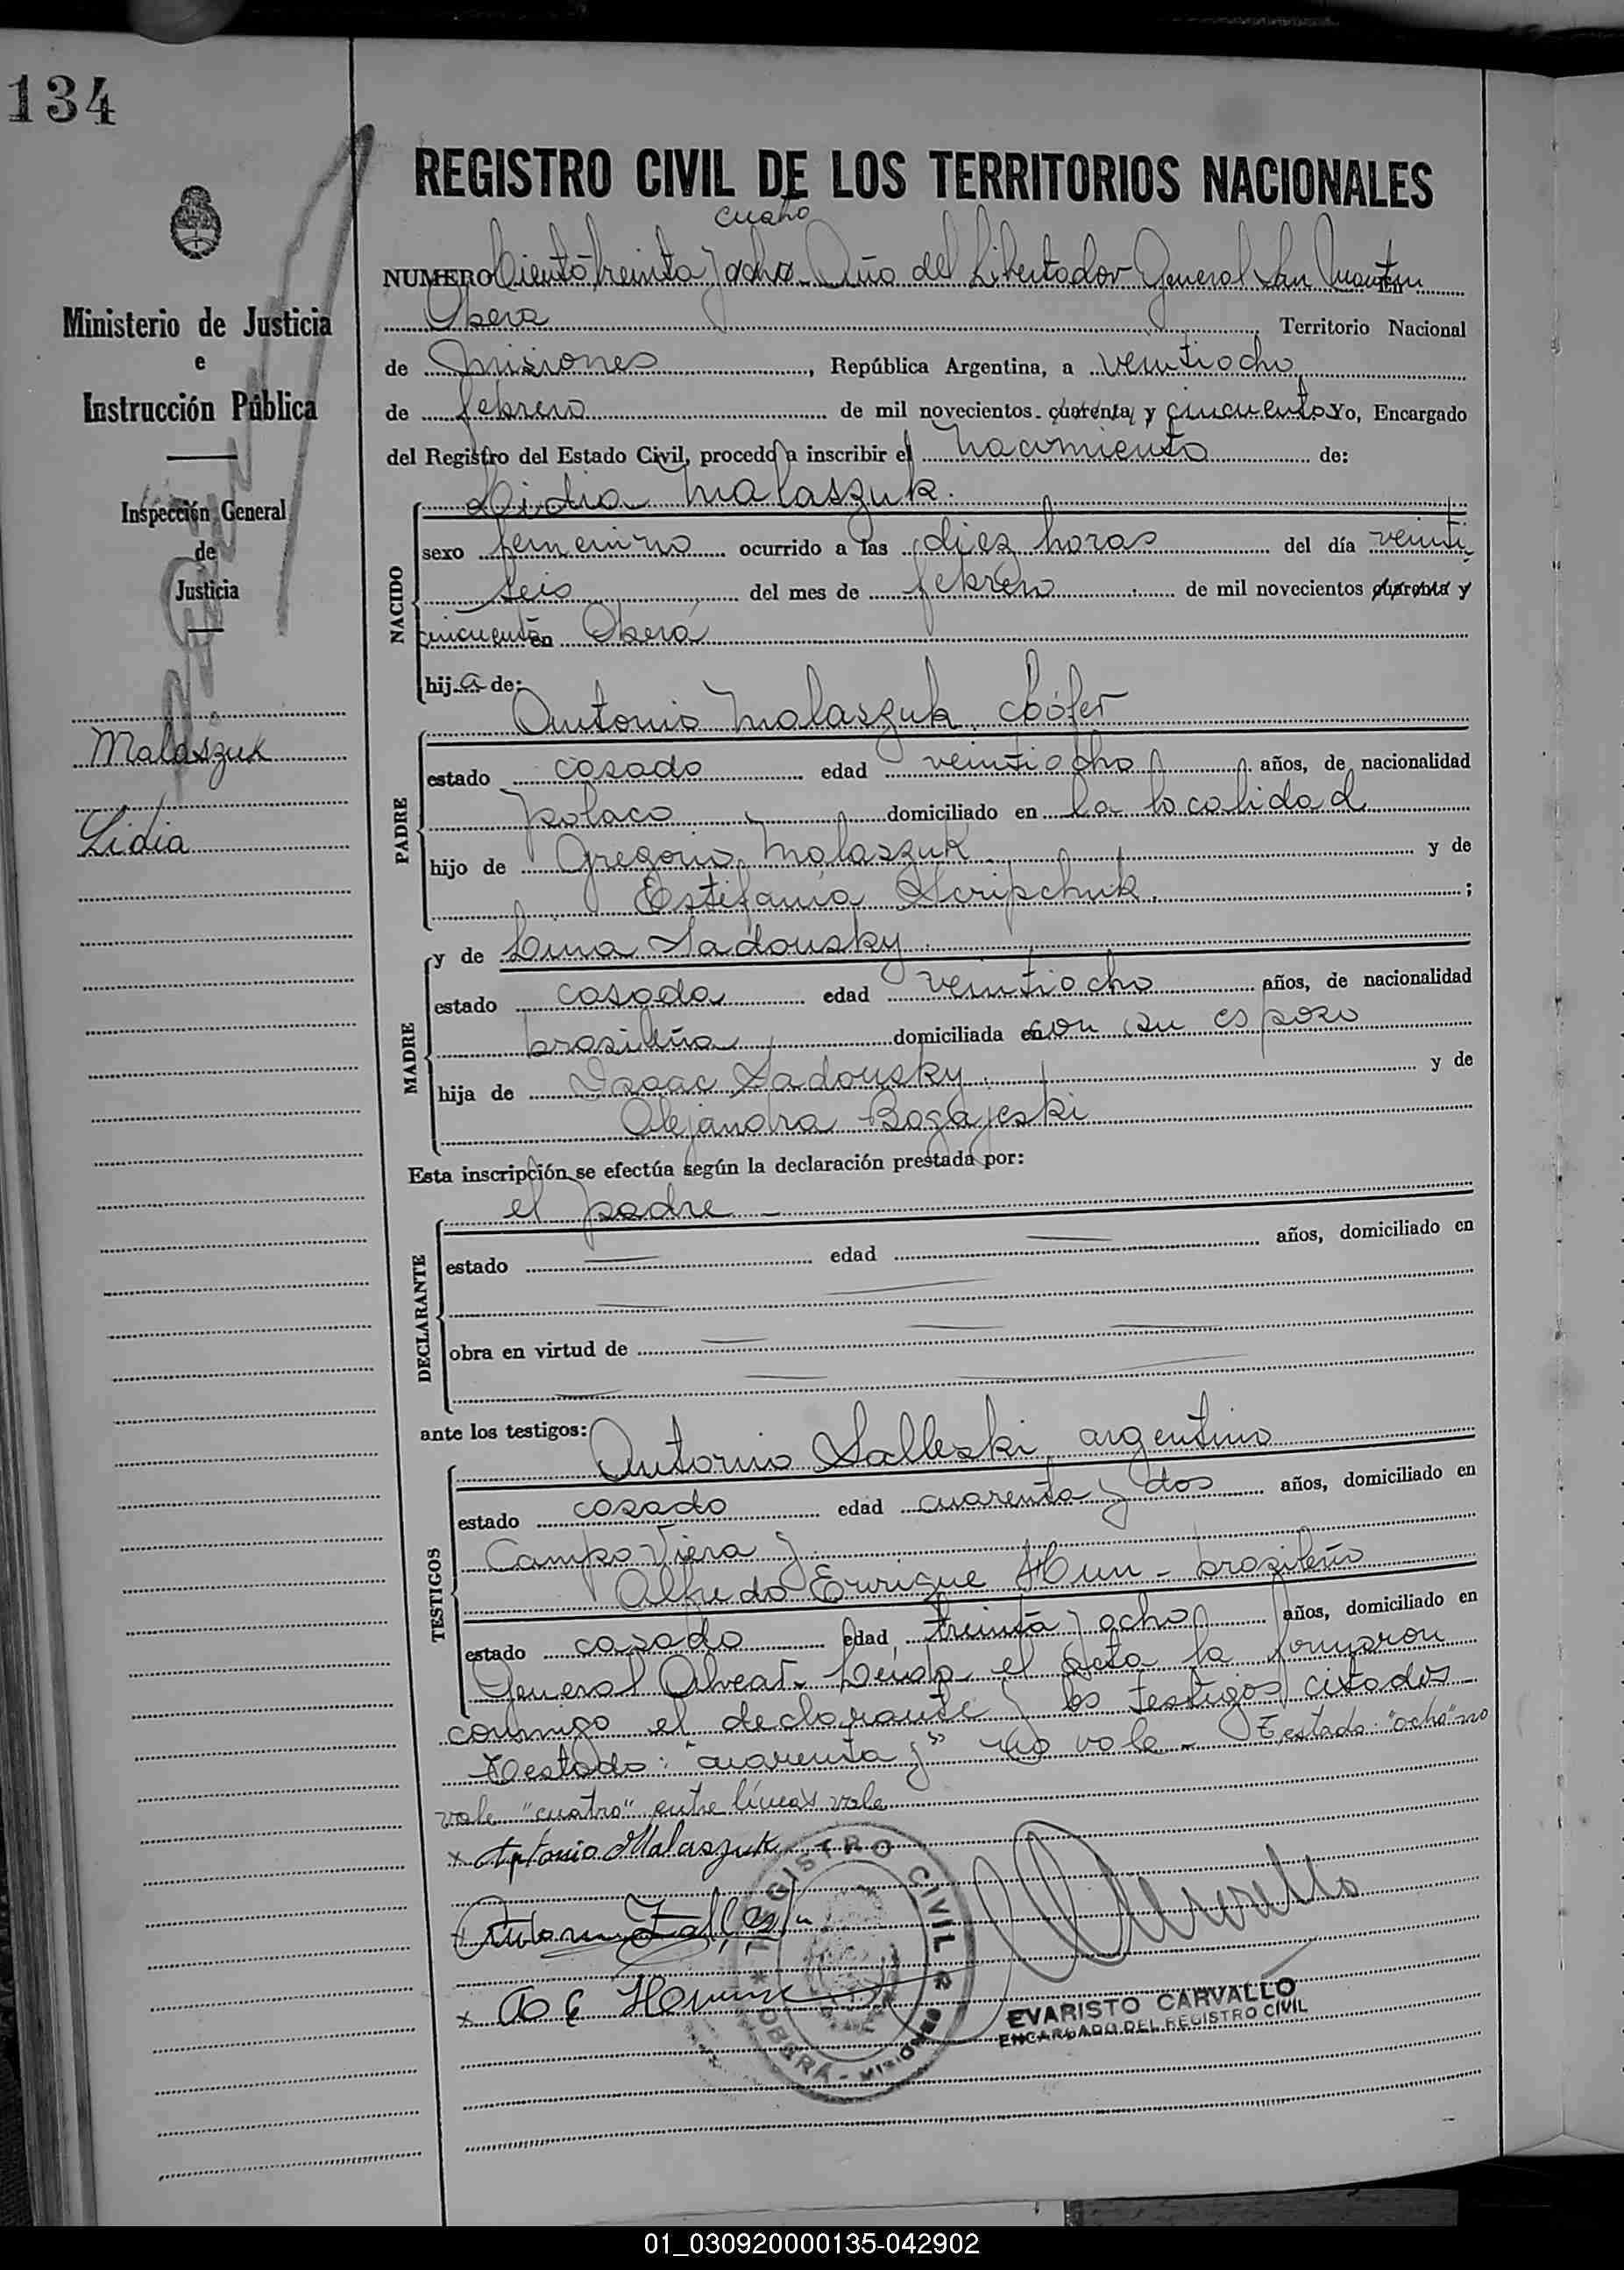 134
Ministerio de Justicia
e
Instrucción Pública
Inspección General
de
Justicia
Malaszuk
Lidia
REGISTRO CIVIL DE LOS TERRITORIOS NACIONALES
cuatro
NUMERO Ciento treinta y ocho. Año del Libertador General San Martín En
Oberá Territorio Nacional
de Misiones, República Argentina, a veintiocho
de febrero de mil novecientos cuarenta y cincuenta Yo, Encargado
del Registro del Estado Civil, procedo a inscribir el nacimiento de:
Lidia Malaszuk.
NACIDO
sexo femenino ocurrido a las diez horas del día veinti-
seis del mes de febrero de mil novecientos cuarenta y
cincuenta en Oberá
hija de:
Antonio Malaszuk. chófer
PADRE
estado casado edad veintiocho años, de nacionalidad
polaco domiciliado en la localidad
hijo de Gregorio Malaszuk y de
Estefania Scripchuk. ;
MADRE
y de Lina Sadousky.
estado casada edad veintiocho años, de nacionalidad
brasileña domiciliada en con su esposo
hija de Isaac Sadousky. y de
Alejandra Bogajeski
Esta inscripción se efectúa según la declaración prestada por:
el padre -
DECLARANTE
estado edad años, domiciliado en
obra en virtud de
ante los testigos:
Antonio Salleski, argentino
TESTIGOS
estado casado edad cuarenta y dos años, domiciliado en
Campo Viera y
Alfredo Enrique Hun - brasileño
estado casado edad treinta y ocho años, domiciliado en
General Alvear. Leída el acta la firmaron
conmigo el declarante y los testigos citados
Testado: "cuarenta y" no vale - Testado: "ocho" no
vale "cuatro" entre líneas vale
x Antonio Malaszuk
x A E
REGISTRO CIVIL
OBERÁ - MISIONES
EVARISTO CARVALLO
ENCARGADO DEL REGISTRO CIVIL
01_030920000135-042902